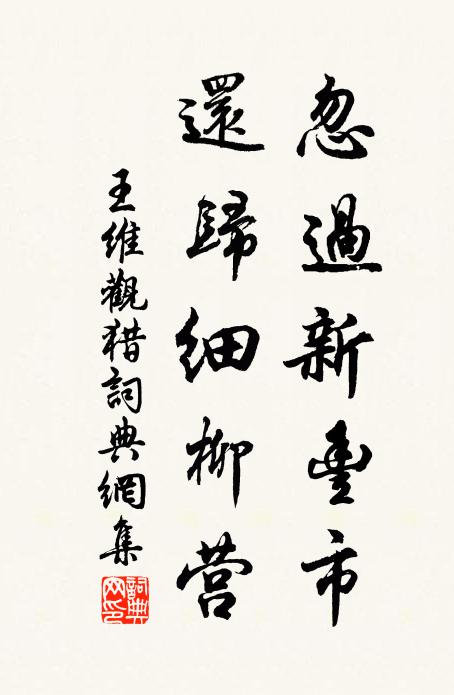 忽過新豐市
還歸細柳营
王維觀猎詞典網集
詞典网印